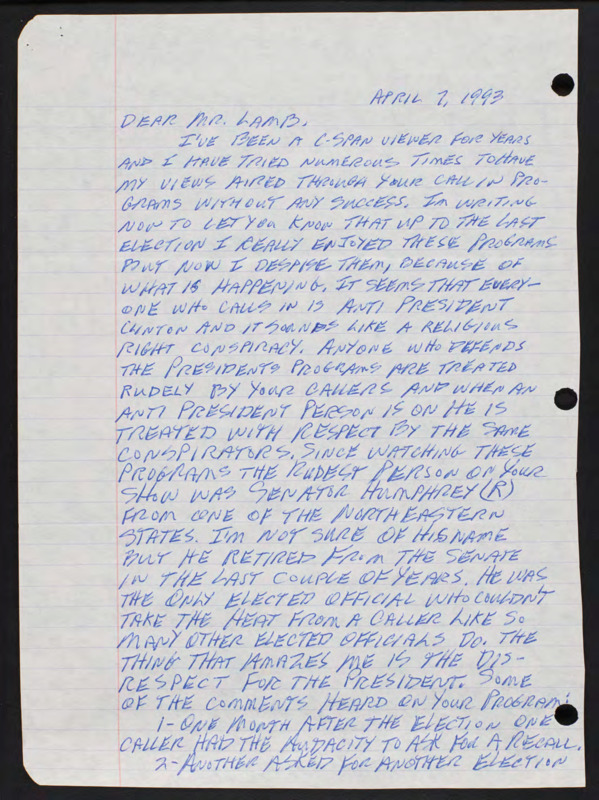 APRIL 7, 1993
DEAR MR. LAMB,
I'VE BEEN A C-SPAN VIEWER FOR YEARS
AND I HAVE TRIED NUMEROUS TIMES TO HAVE
MY VIEWS AIRED THROUGH YOUR CALL IN PRO-
GRAMS WITHOUT ANY SUCCESS. I'M WRITING
NOW TO LET YOU KNOW THAT UP TO THE LAST
ELECTION I REALLY ENJOYED THESE PROGRAMS
BUT NOW I DESPISE THEM, BECAUSE OF
WHAT IS HAPPENING. IT SEEMS THAT EVERY-
ONE WHO CALLS IN IS ANTI PRESIDENT
CLINTON AND IT SOUNDS LIKE A RELIGIOUS
RIGHT CONSPIRACY. ANYONE WHO DEFENDS
THE PRESIDENTS PROGRAMS ARE TREATED
RUDELY BY YOUR CALLERS AND WHEN AN
ANTI PRESIDENT PERSON IS ON HE IS
TREATED WITH RESPECT BY THE SAME
CONSPIRATORS. SINCE WATCHING THESE
PROGRAMS THE RUDEST PERSON ON YOUR
SHOW WAS SENATOR HUMPHREY (R)
FROM ONE OF THE NORTHEASTERN
STATES. I'M NOT SURE OF HIS NAME
BUT HE RETIRED FROM THE SENATE
IN THE LAST COUPLE OF YEARS. HE WAS
THE ONLY ELECTED OFFICIAL WHO COULDN'T
TAKE THE HEAT FROM A CALLER LIKE SO
MANY OTHER ELECTED OFFICIALS DO. THE
THING THAT AMAZES ME IS THE DIS-
RESPECT FOR THE PRESIDENT. SOME
OF THE COMMENTS HEARD ON YOUR PROGRAM:
1- ONE MONTH AFTER THE ELECTION ONE
CALLER HAD THE AUDACITY TO ASK FOR A RECALL.
2- ANOTHER ASKED FOR ANOTHER ELECTION